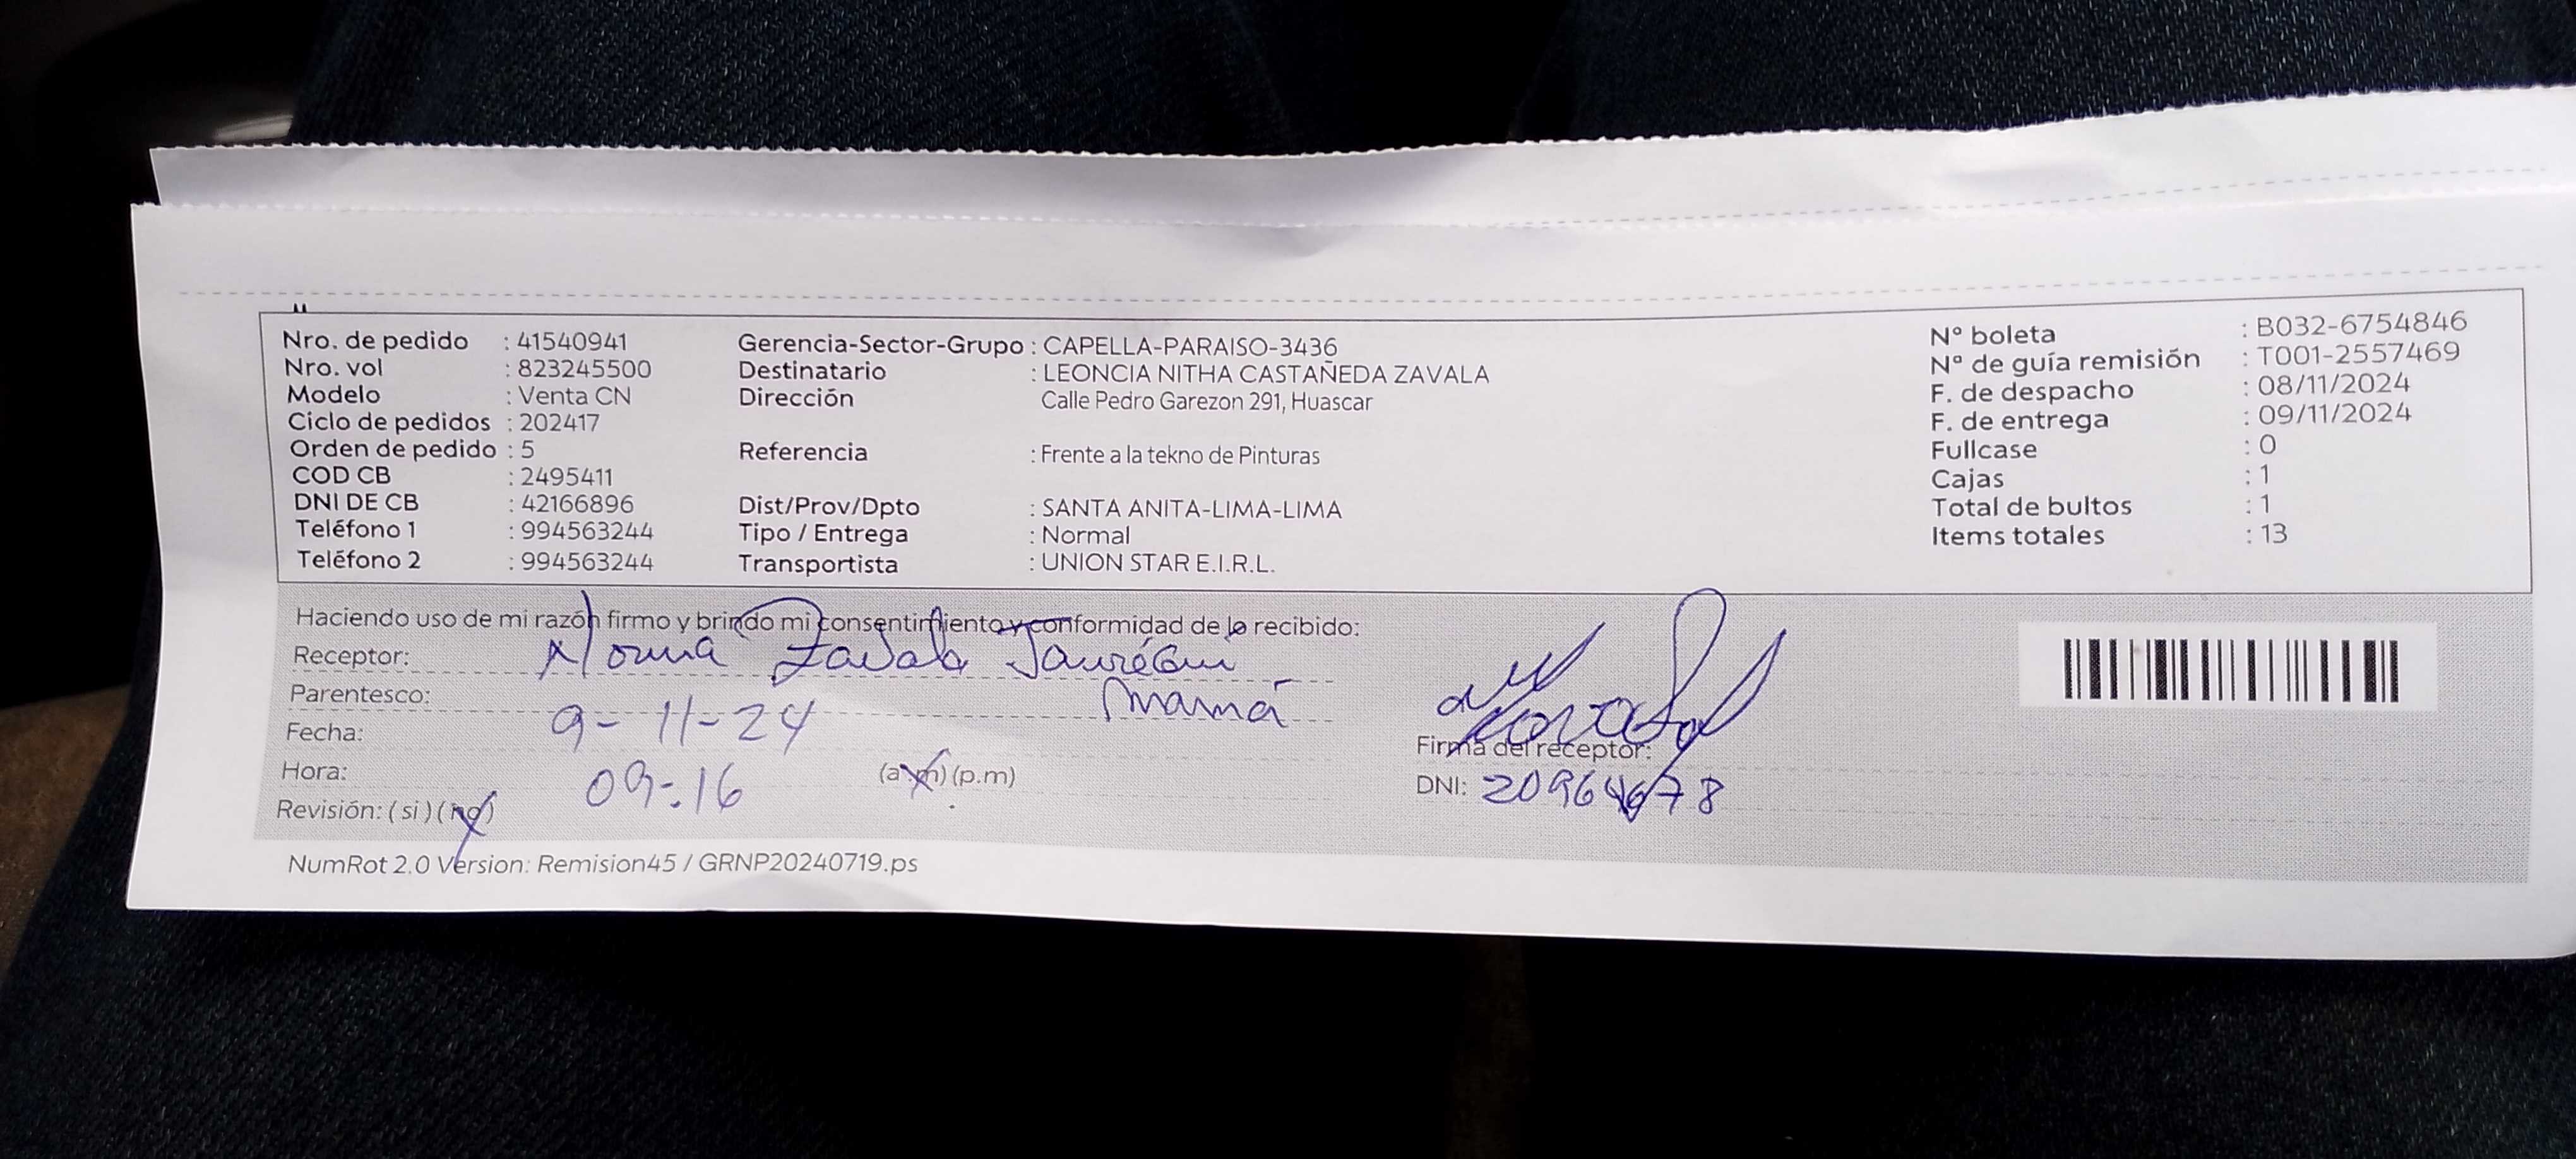 Nro. de pedido : 41540941
Nro. vol : 823245500
Modelo : Venta CN
Ciclo de pedidos : 202417
Orden de pedido : 5
COD CB : 2495411
DNI DE CB : 42166896
Teléfono 1 : 994563244
Teléfono 2 : 994563244
Gerencia-Sector-Grupo : CAPELLA-PARAISO-3436
Destinatario : LEONCIA NITHA CASTAÑEDA ZAVALA
Dirección Calle Pedro Garezon 291, Huascar
Referencia : Frente a la tekno de Pinturas
Dist/Prov/Dpto : SANTA ANITA-LIMA-LIMA
Tipo / Entrega : Normal
Transportista : UNION STAR E.I.R.L.
Nº boleta : B032-6754846
Nº de guía remisión : T001-2557469
F. de despacho : 08/11/2024
F. de entrega : 09/11/2024
Fullcase : 0
Cajas : 1
Total de bultos : 1
Items totales : 13
Haciendo uso de mi razón firmo y brindo mi consentimiento y conformidad de lo recibido:
Receptor: Norma Zavala
Parentesco: Mamá
Fecha: 9-11-24
Hora: 09:16 (a.m) (p.m)
Revisión: ( si ) ( no )
Firma del receptor:
DNI:
NumRot 2.0 Version: Remision45 / GRNP20240719.ps